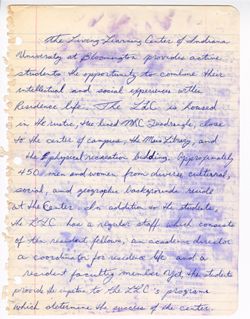 The Living Learning Center of Indiana
University at Bloomington provides active
students the opportunity to combine their
intellectual and social experiences with
Residence life. The LLC is housed
in the rustic, tree lined MRC Quadrangle, close
to the center of campus, the Main Library, and
the physical recreation building. Approximately
450 men and women from diverse cultural,
social, and geographic backgrounds reside
at the Center. In addition to the students
the LLC has a regular staff which consists
of ten resident fellows, an academic director
a coordinator for residence life and a
resident faculty member. Yet, the students
provide the impetus to the LLC's programs
which determine the success of the center.